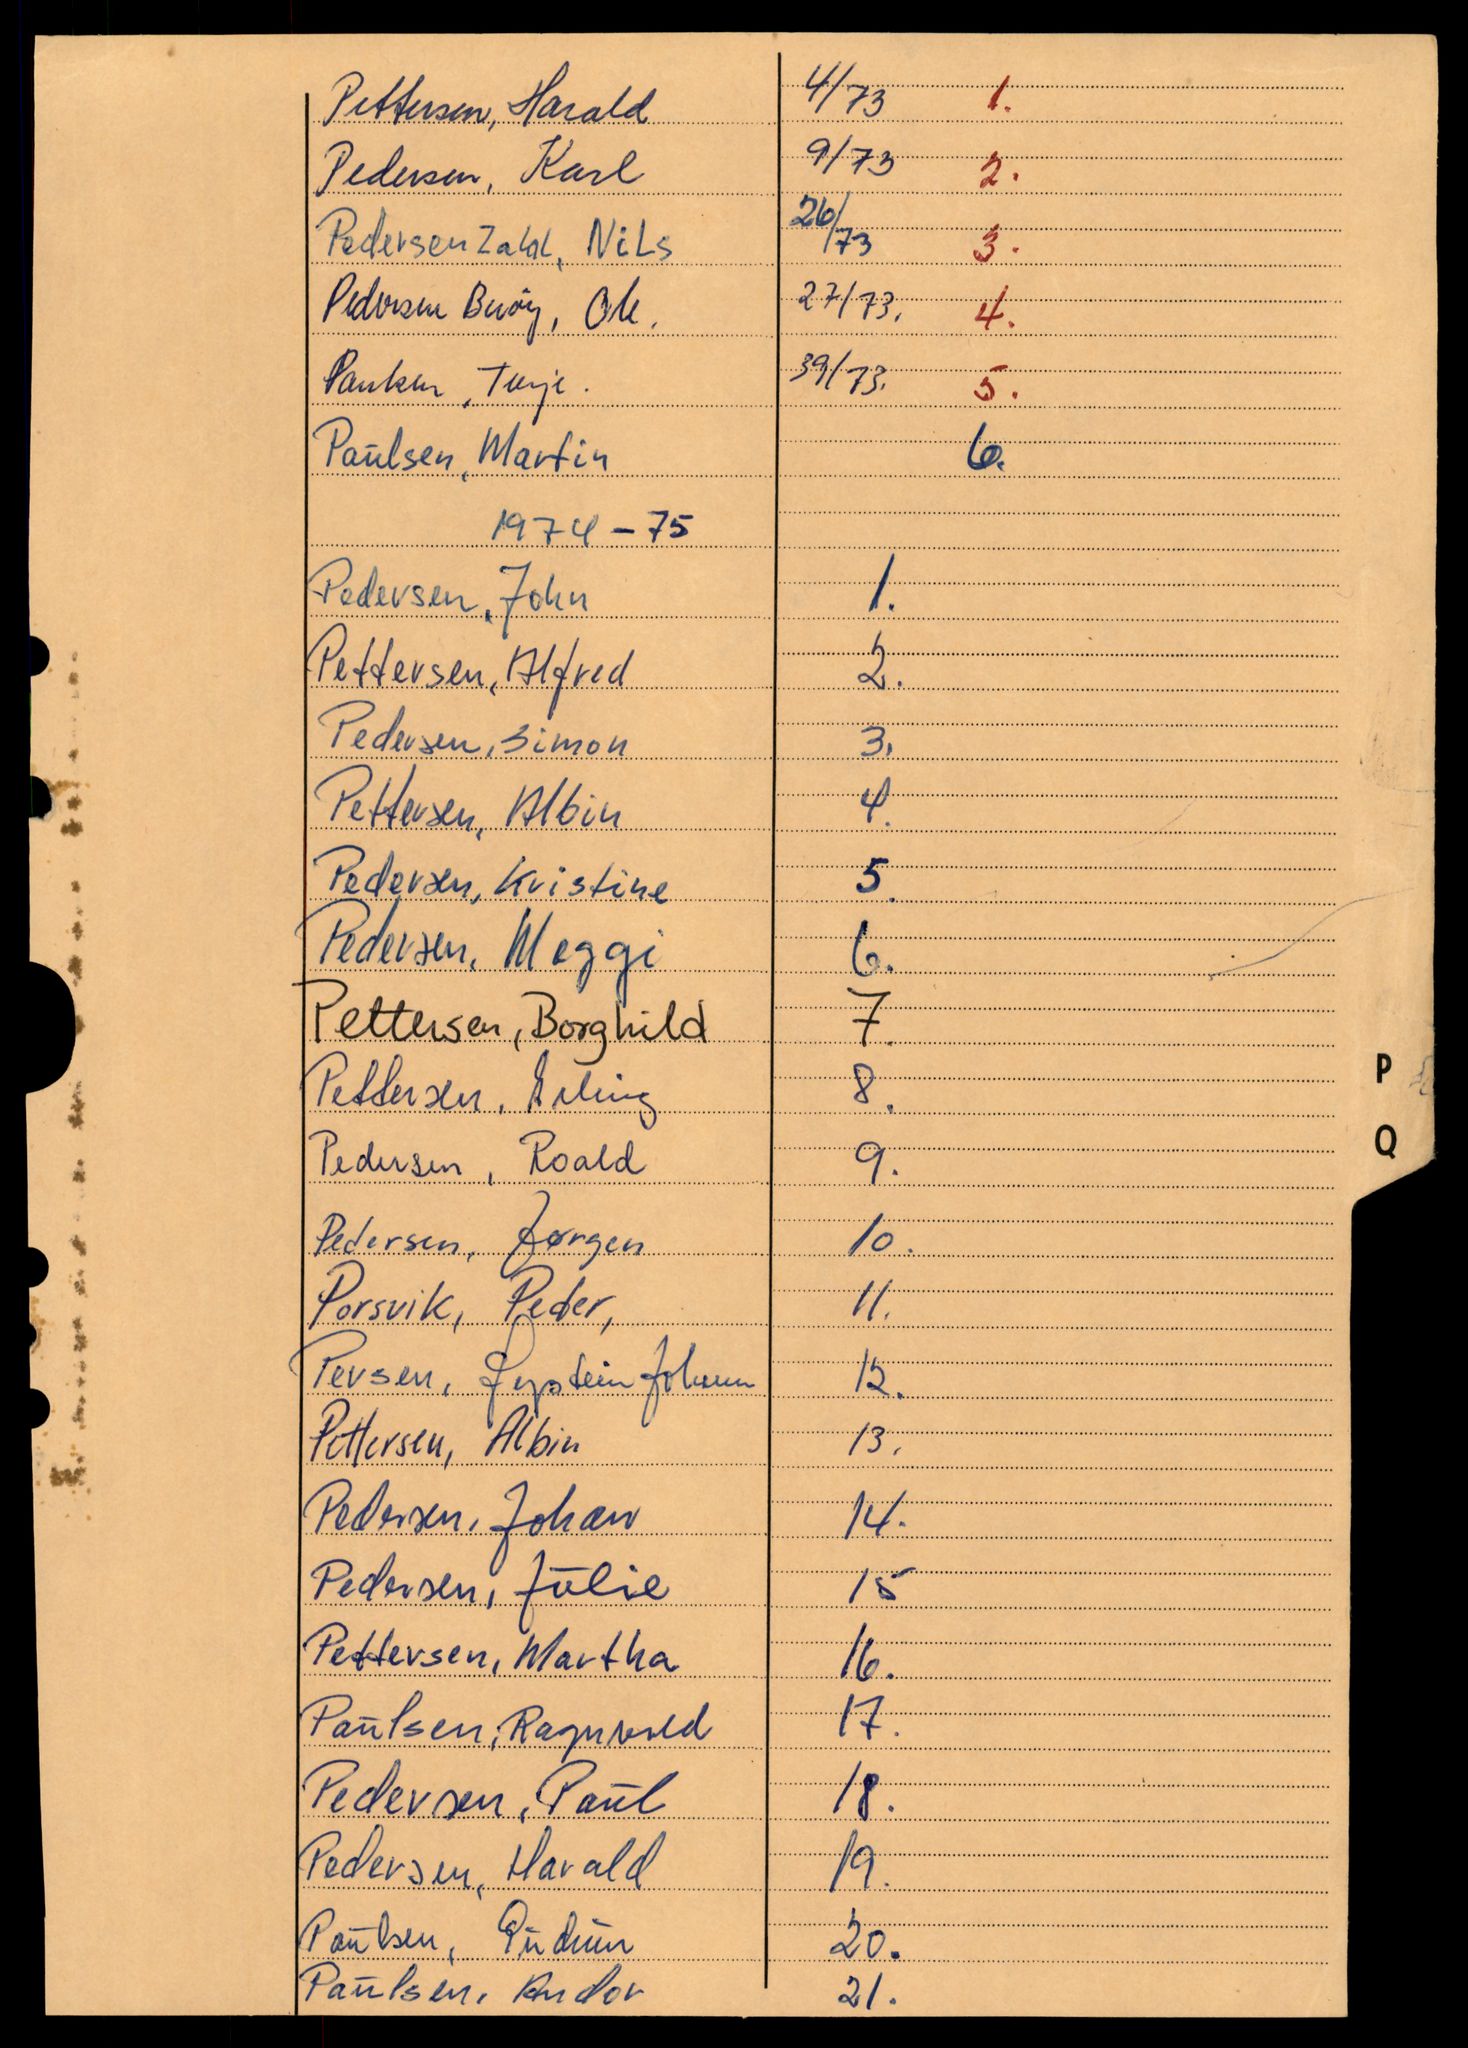 Pettersen, Harald 4/73 1.
Pedersen, Karl 9/73 2.
Pedersen Zahl, Nils 26/73 3.
Pedersen 27/73. 4.
Terje. 39/73. 5.
Paulsen, Martin 6.
1974-75
Pedersen, John 1.
Pettersen, Alfred 2.
Pedersen, Simon 3.
Pettersen, Albin 4.
Pedersen, Kristine 5.
Pedersen, Meggi 6.
Pettersen, Borghild 7.
Pettersen, Erling 8.
Pedersen, Roald 9.
Pedersen, Jørgen 10.
Porsvik, Peder, 11.
Persen, Øystein Johan 12.
Pettersen, Albin 13.
Pedersen, Johan 14.
Pedersen, Julie 15
Pettersen, Martha 16.
Paulsen, Ragnvald 17.
Pedersen, Paul 18.
Pedersen, Harald 19.
Paulsen, Gudrun 20.
Paulsen, Andor 21.
P
Q